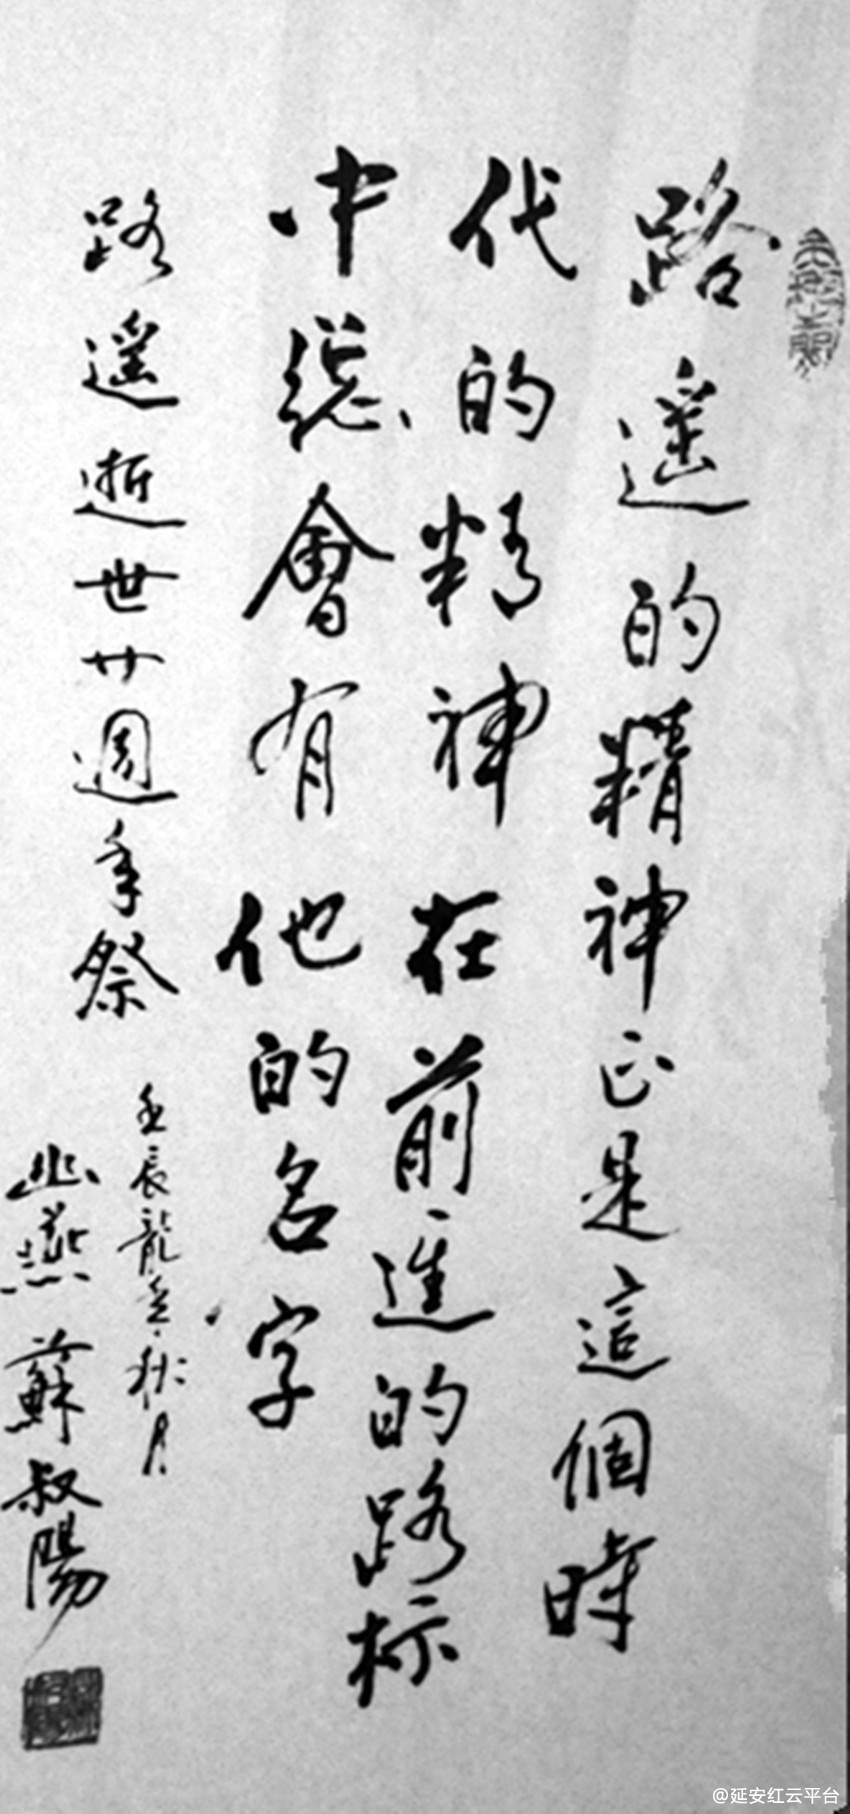 路遥的精神正是這個時
代的精神在前進的路标
中總會有他的名字
路遥逝世廿週年祭
壬辰龍年秋月
幽燕蘇叔陽
@延安红云平台